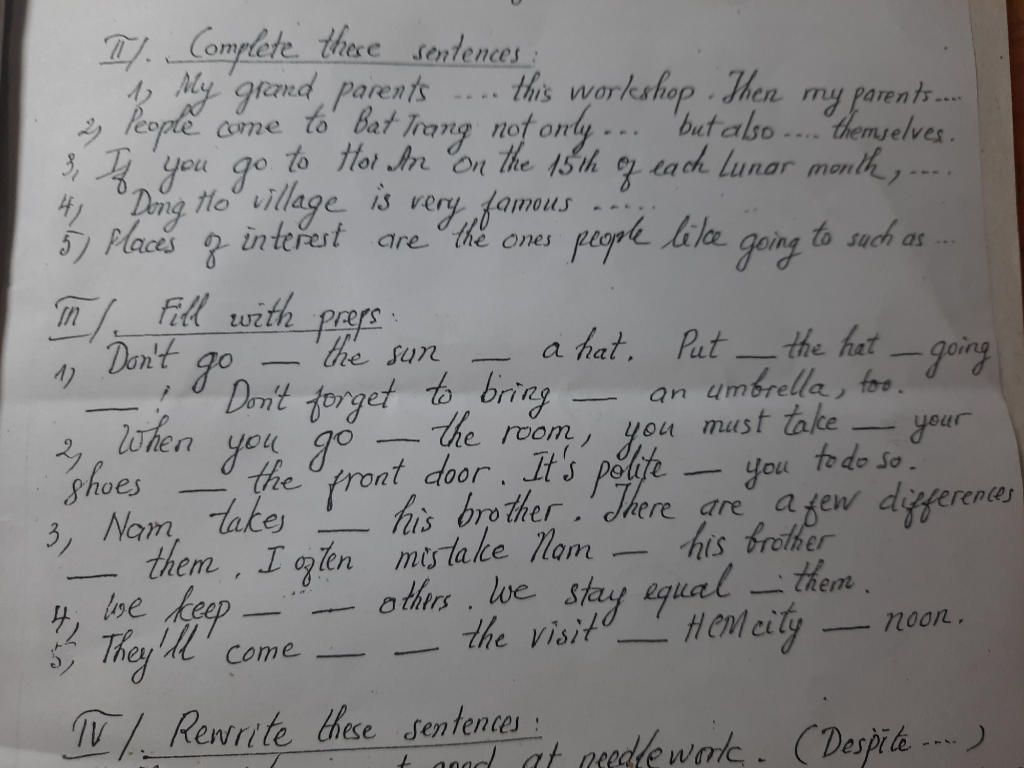 II/. Complete these sentences:
1, My grand parents .... this workshop. Then my parents....
2, People come to Bat Trang not only... but also .... themselves.
3, If you go to Hoi An on the 15th of each Lunar month, ....
4, Dong Ho village is very famous .....
5) Places of interest are the ones people like going to such as ...
III/. Fill with preps:
1) Don't go __ the sun __ a hat. Put __ the hat __ going
__! Don't forget to bring __ an umbrella, too.
2, When you go __ the room, you must take __ your
shoes __ the front door. It's polite __ you to do so.
3, Nam takes __ his brother. There are a few differences
__ them. I often mistake Nam __ his brother
4, We keep __ __ others. We stay equal __ them.
5, They'll come __ __ the visit __ HCM city __ noon.
IV/. Rewrite these sentences:
good at needlework. (Despite ....)